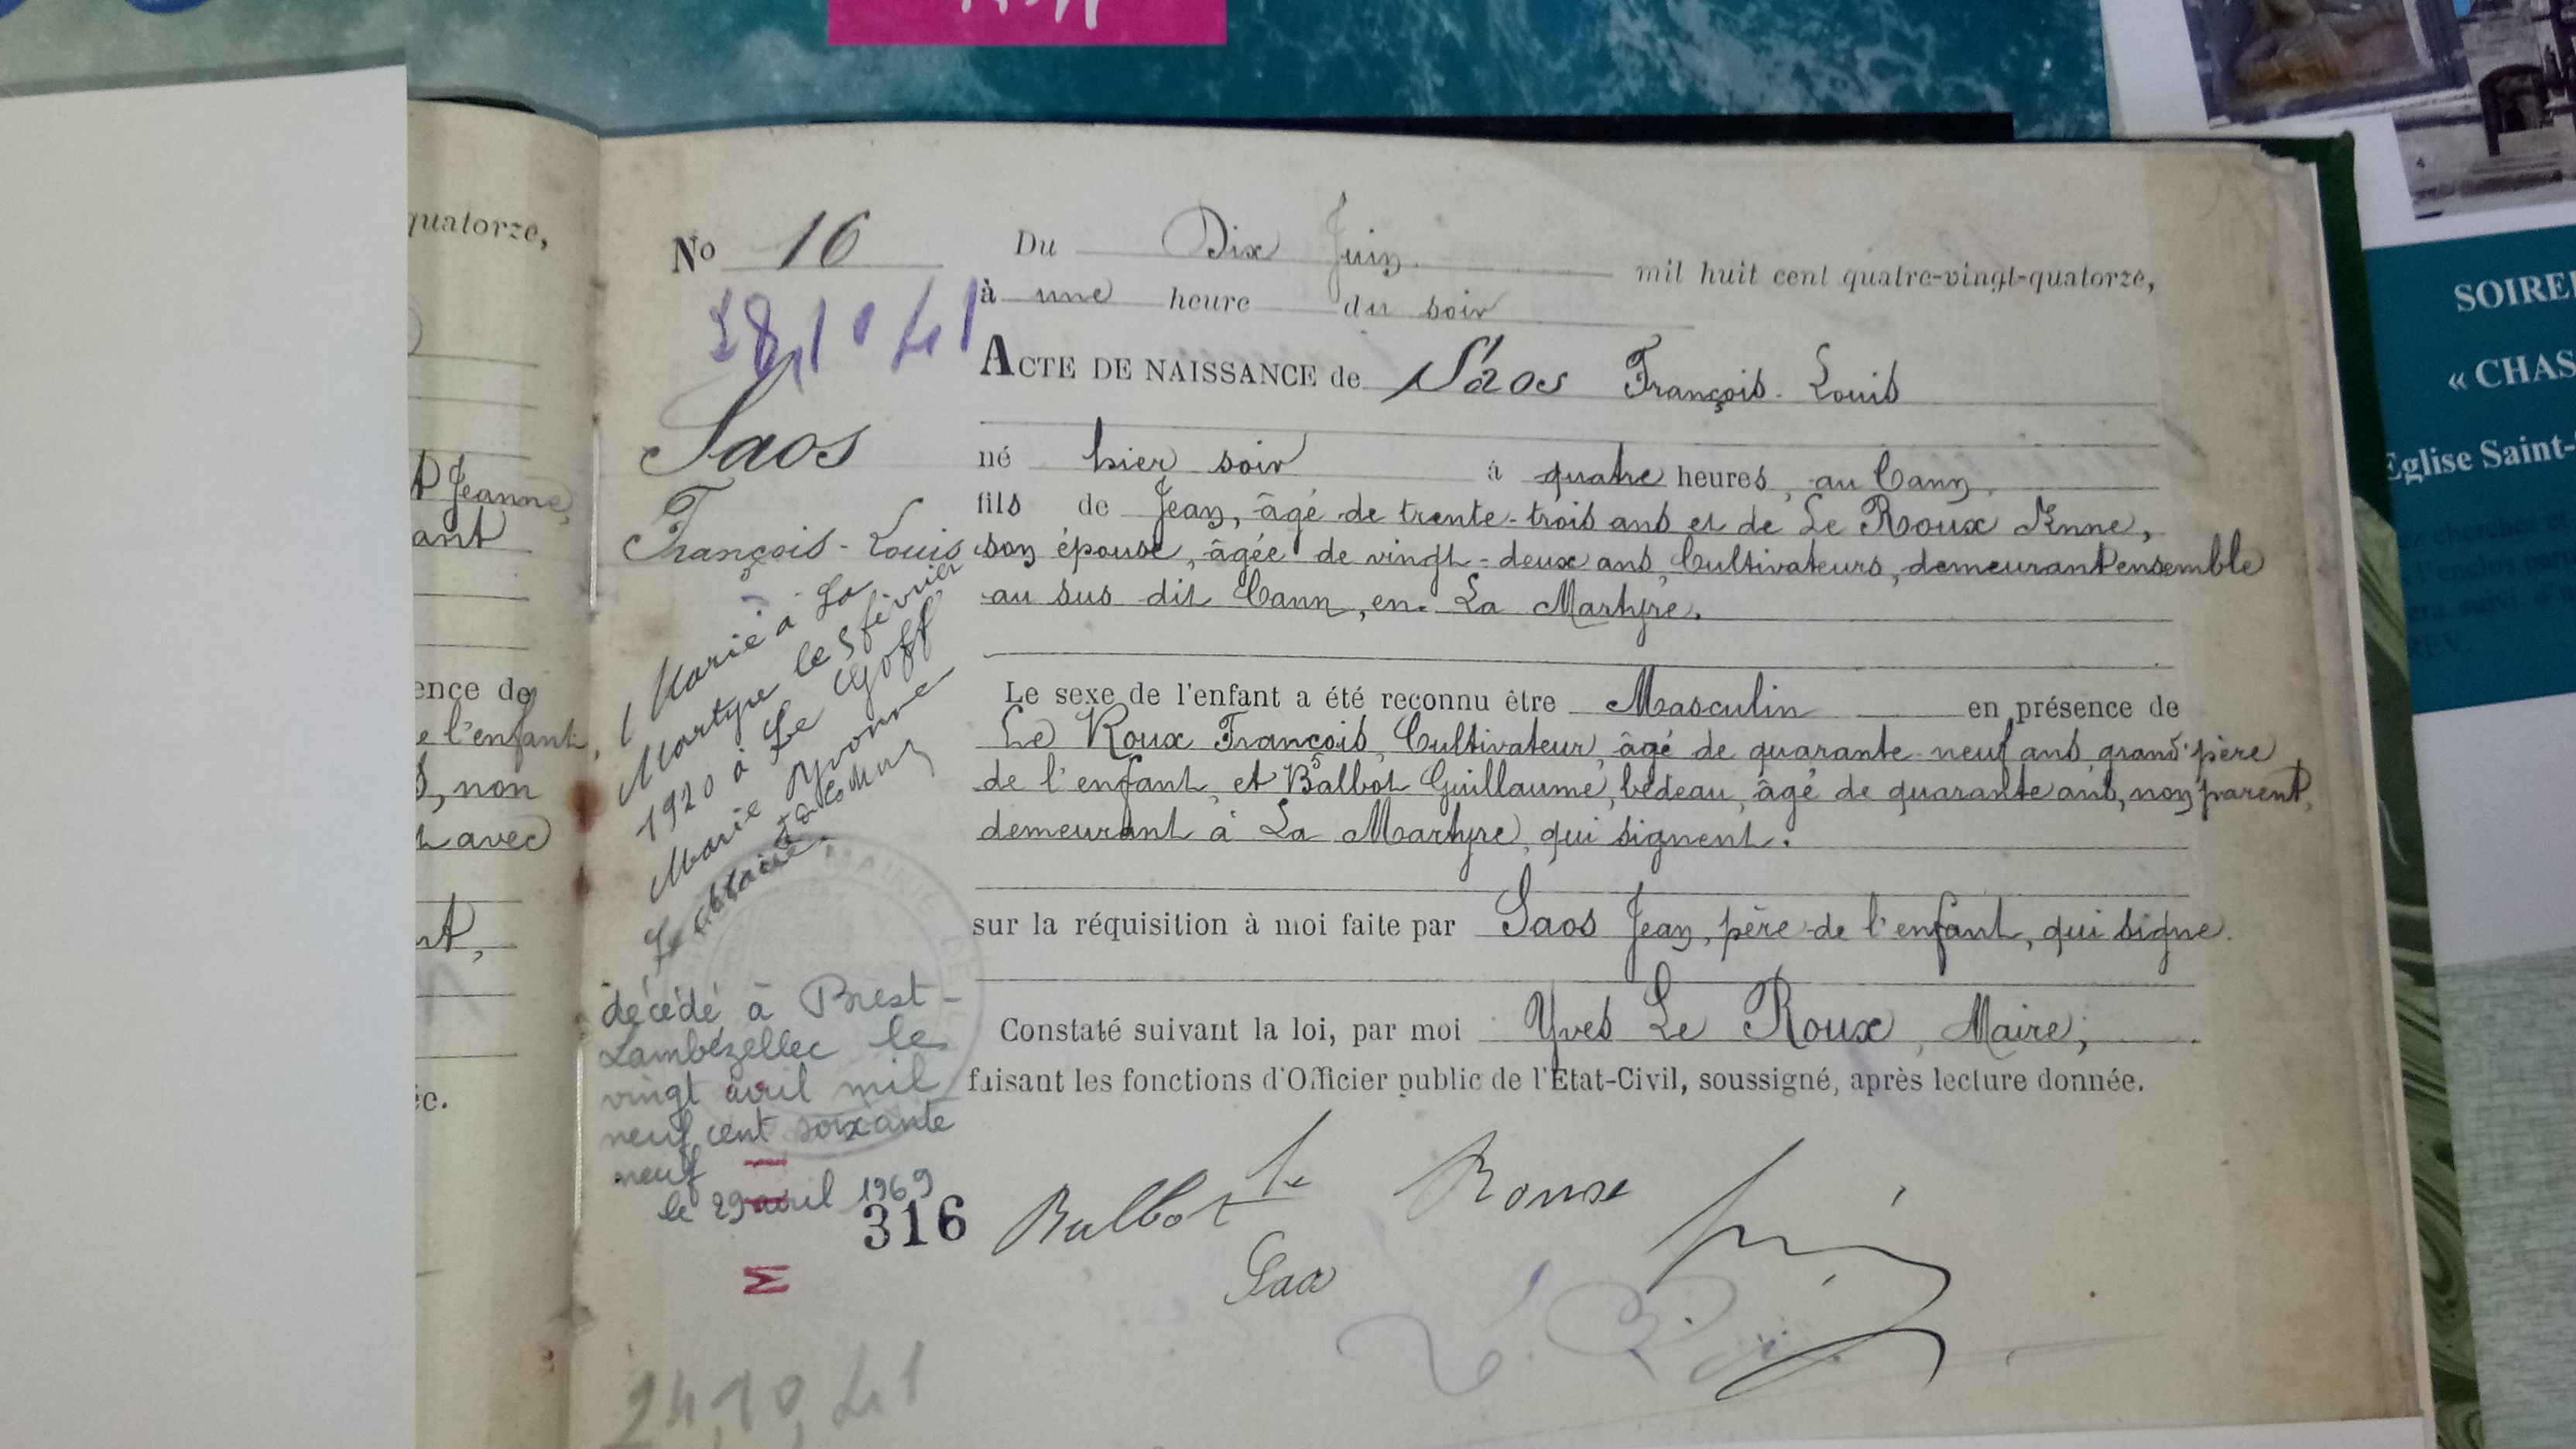 quatorze,
t Jeanne,
ant
ence de
e l'enfant,
s, non
t avec
nt,
No 16
28.10 41
Saos
François-Louis
Marié à La
Martyre le 5 février
1920 à Le Goff
Marie Yvonne
décédé à Brest-
Lambézellec le
vingt avril mil
neuf cent soixante
neuf
le 29 avril 1969
316
M
24.10.41
Du Dix Juin mil huit cent quatre-vingt-quatorze,
à une heure du soir
ACTE DE NAISSANCE de Saos François-Louis
né hier soir à quatre heures, au Cann
fils de Jean, âgé de trente-trois ans et de Le Roux Anne,
son épouse, âgée de vingt-deux ans, Cultivateurs, demeurant ensemble
au sus dit Cann, en La Martyre.
Le sexe de l'enfant a été reconnu être Masculin en présence de
Le Roux François, Cultivateur, âgé de quarante neuf ans, grand'père
de l'enfant, et Balbot Guillaume, bedeau, âgé de quarante ans, non parent,
demeurant à La Martyre, qui signent.
sur la réquisition à moi faite par Saos Jean, père de l'enfant, qui signe.
Constaté suivant la loi, par moi Yves Le Roux, Maire,
faisant les fonctions d'Officier public de l'Etat-Civil, soussigné, après lecture donnée.
Balbot Le Roux
MAIRIE DE
SOIREE
« CHAS
Eglise Saint-